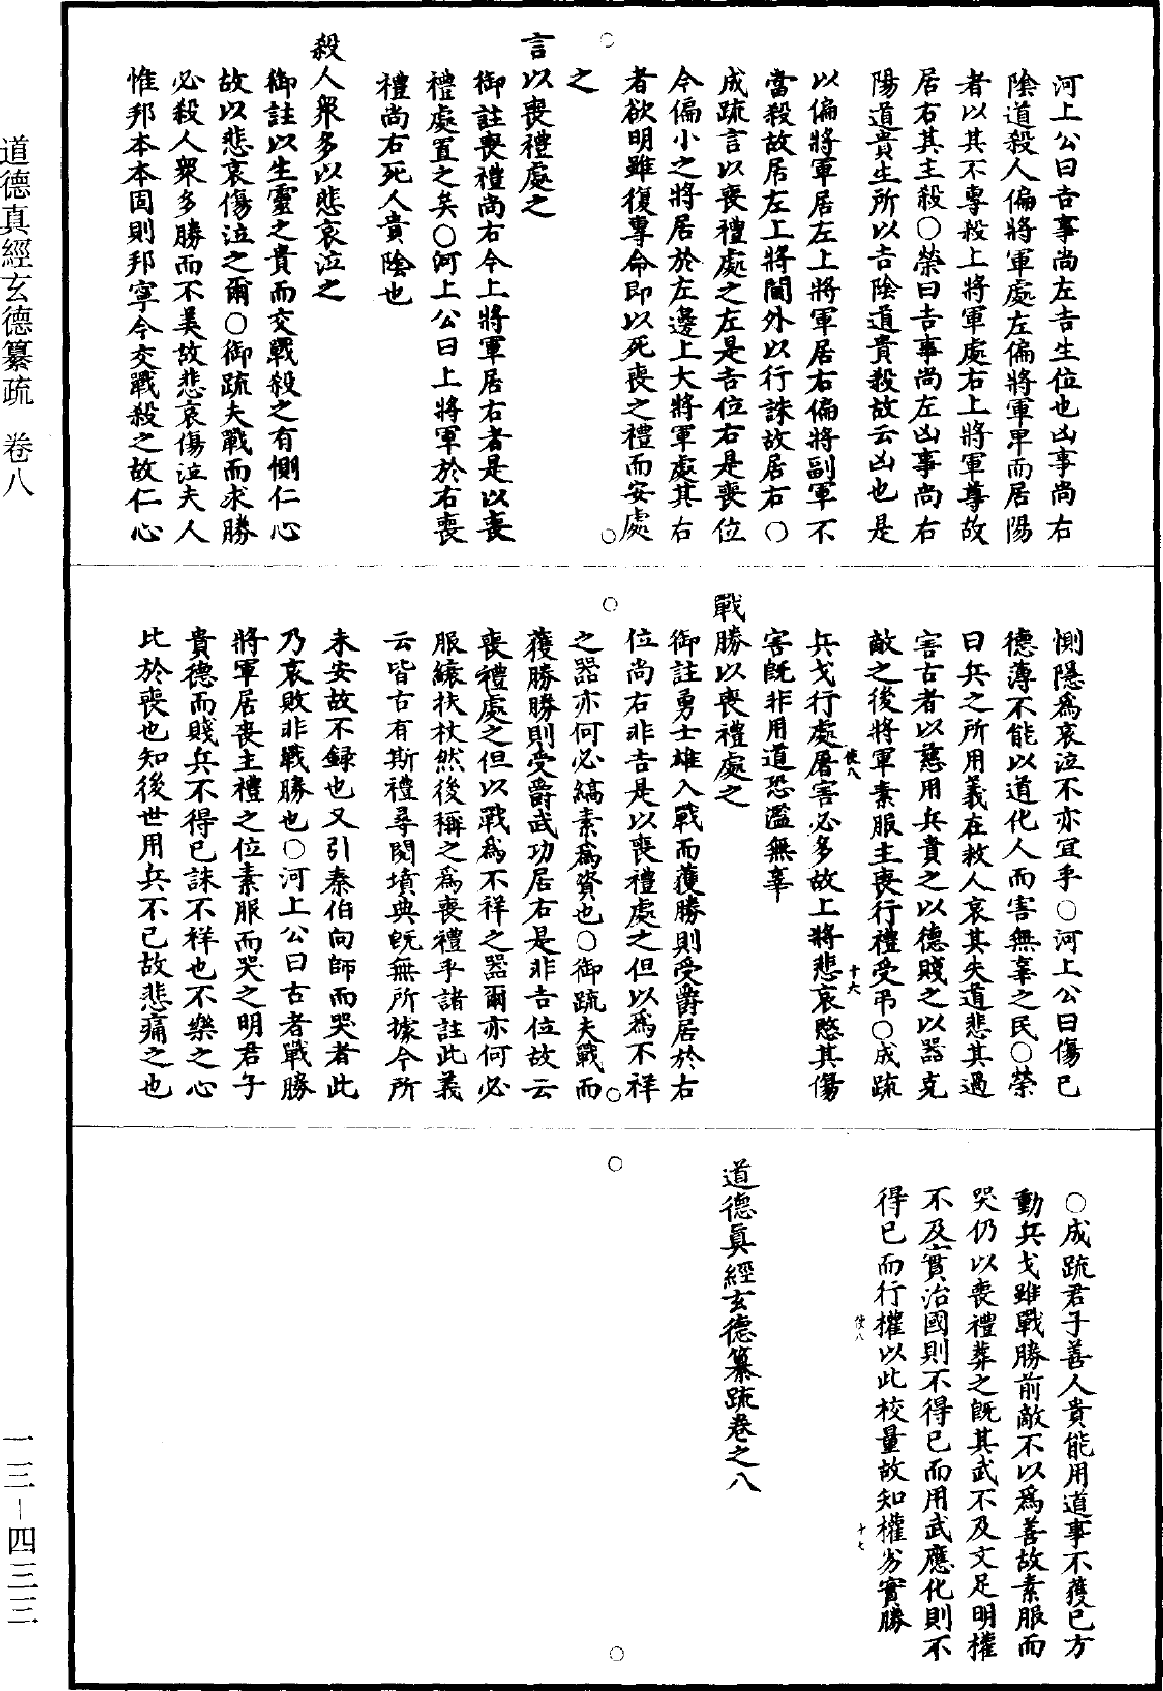 河上公曰吉事尚左吉生位也凶事尚右
陰道殺人偏將軍處左偏將軍卑而居陽
者以其不專殺上將軍處右上將軍尊故
居右其主殺○榮曰吉事尚左凶事尚右
陽道貴生所以吉陰道貴殺故云凶也是
以偏將軍居左上將軍居右偏將副軍不
當殺故居左上將閫外以行誅故居右○
成疏言以喪禮處之左是吉位右是喪位
今偏小之將居於左邊上大將軍處其右
者欲明雖復專命即以死喪之禮而安處
之
言以喪禮處之
御註喪禮尚右今上將軍居右者是以喪
禮處置之矣○河上公曰上將軍於右喪
禮尚右死人貴陰也
殺人衆多以悲哀泣之
御註以生靈之貴而交戰殺之有惻仁心
故以悲哀傷泣之爾○御疏夫戰而求勝
必殺人衆多勝而不美故悲哀傷泣夫人
惟邦本本固則邦寧今交戰殺之故仁心
惻隱爲哀泣不亦宜乎○河上公曰傷己
德薄不能以道化人而害無辜之民○榮
曰兵之所用義在救人哀其失道悲其過
害古者以慈用兵貴之以德賤之以器克
敵之後將軍素服主喪行禮受弔○成疏
使八 十六
兵戈行處屠害必多故上將悲哀愍其傷
害旣非用道恐濫無辜
戰勝以喪禮處之
御註勇士雄入戰而獲勝則受爵居於右
位尚右非吉是以喪禮處之但以爲不祥
之器亦何必縞素爲資也○御疏夫戰而
獲勝勝則受爵武功居右是非吉位故云
喪禮處之但以戰爲不祥之器爾亦何必
服縗扶杖然後稱之爲喪禮乎諸註此義
云皆古有斯禮尋閱墳典旣無所據今所
未安故不録也又引秦伯向師而哭者此
乃哀敗非戰勝也○河上公曰古者戰勝
將軍居喪主禮之位素服而哭之明君子
貴德而賤兵不得已誅不祥也不樂之心
比於喪也知後世用兵不已故悲痛之也
○成疏君子善人貴能用道事不獲已方
動兵戈雖戰勝前敵不以爲善故素服而
哭仍以喪禮葬之旣其武不及文足明權
不及實治國則不得已而用武應化則不
得已而行權以此校量故知權劣實勝
使八 十七
道德眞經玄德纂疏卷之八
道德真經玄德纂疏 卷八
一三－四三三